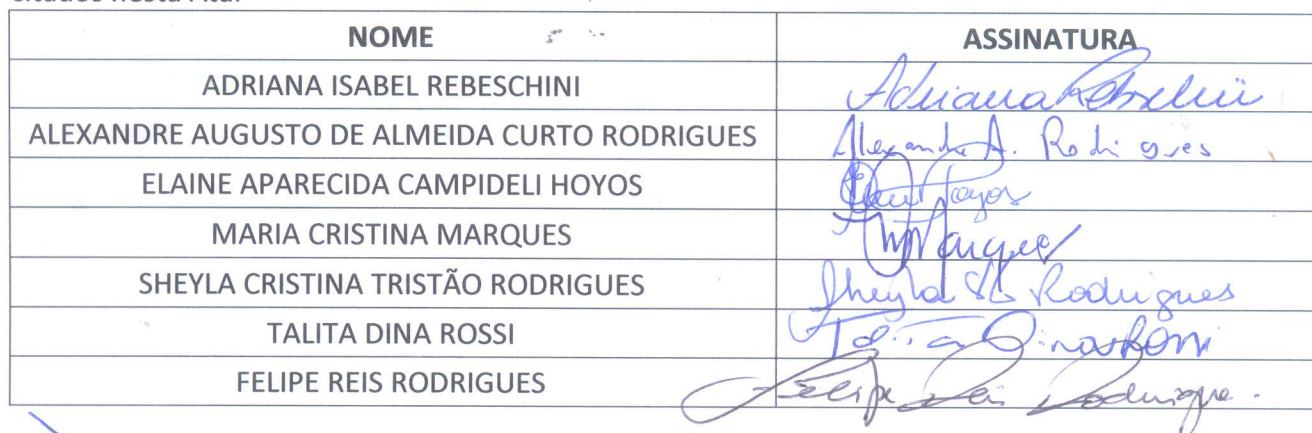 citados nesta Ata.
NOME ASSINATURA
ADRIANA ISABEL REBESCHINI Adriana Rebeschini
ALEXANDRE AUGUSTO DE ALMEIDA CURTO RODRIGUES Alexandre A. Rodrigues
ELAINE APARECIDA CAMPIDELI HOYOS Hoyos
MARIA CRISTINA MARQUES Marques
SHEYLA CRISTINA TRISTÃO RODRIGUES Sheyla Rodrigues
TALITA DINA ROSSI Talita Dina Rossi
FELIPE REIS RODRIGUES Felipe Reis Rodrigues.